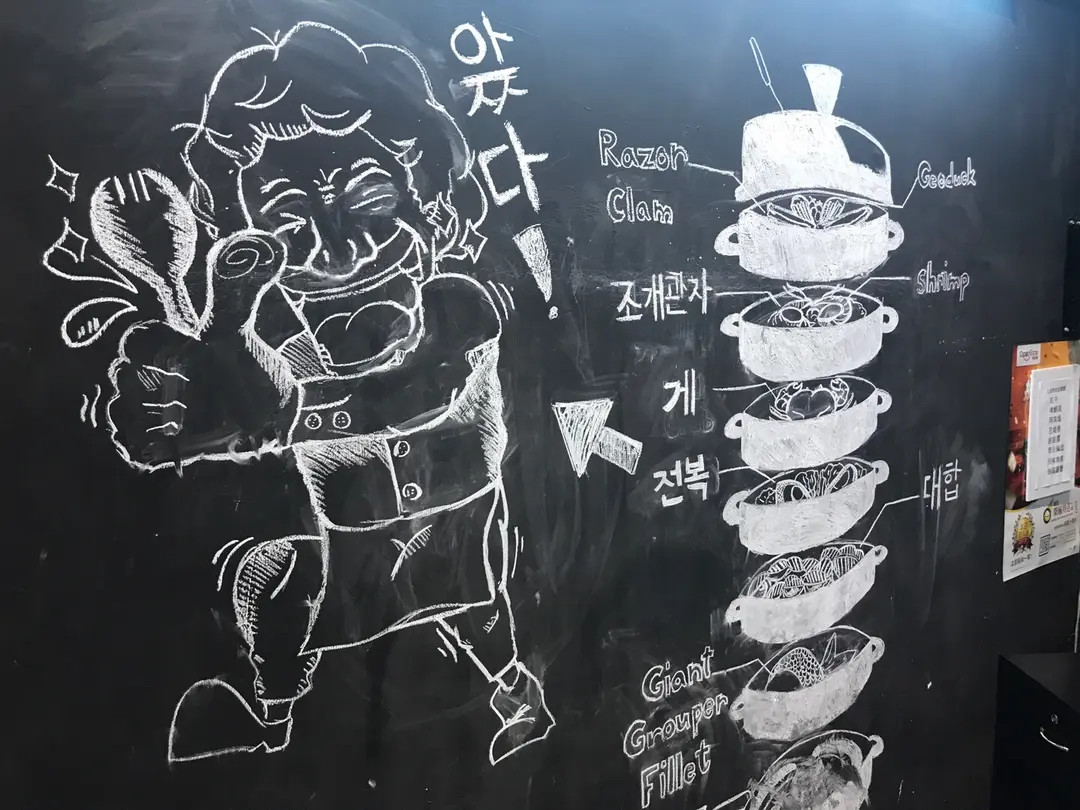 다!
Razor
Clam
Geoduck
조개관자
Shrimp
게
전복
대합
Giant
Grouper
Fillet